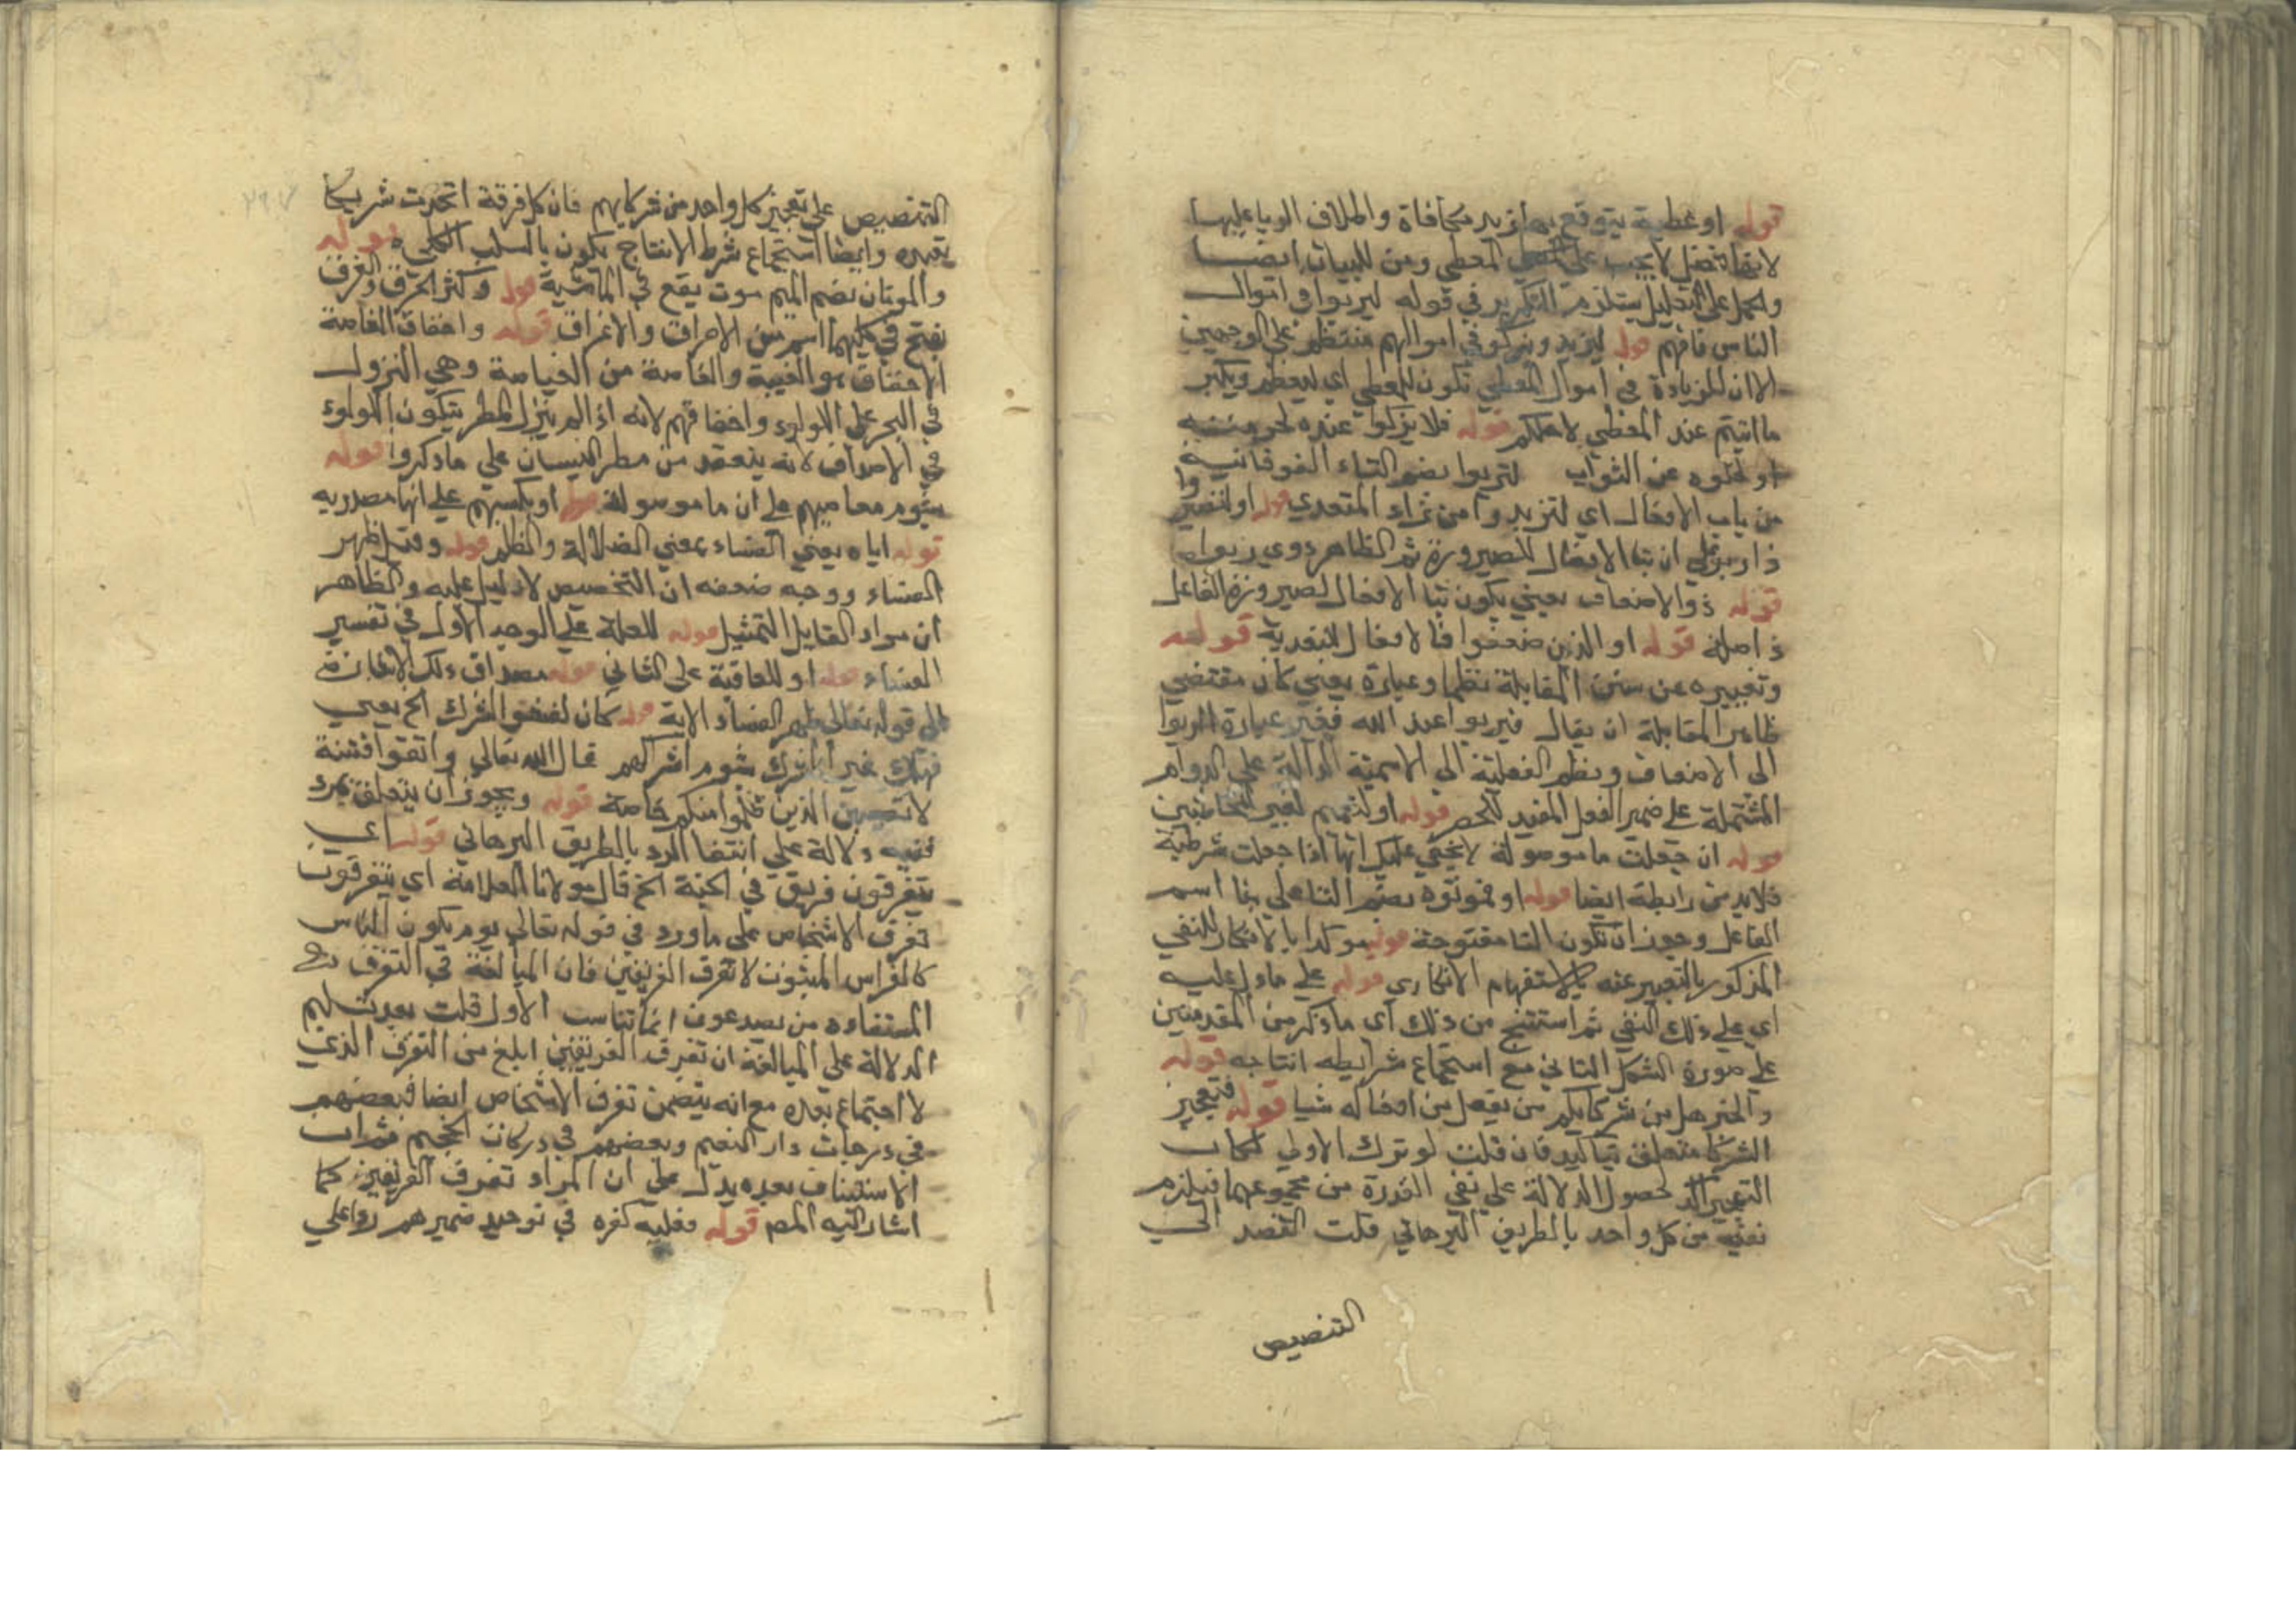 قوله او عطية يتوقع بها مزيد مكافاة واطلاق الربا عليها
لانها تفضل لا يجب على المعطي ومن للبيان ايضا
وحمل على التعليل يستلزم التكرير في قوله ليربوا في اموال
الناس فافهم قوله ليزيد ويزكو في اموالهم منتظم على الوجهين
الا ان الزيادة في اموال المعطي تكون للمعطي اي ليعظم ويكبر
ما اتيتم عند المعطي لاجلكم قوله فلا يزكوا عنده لحرمته
او لخلوه عن الثواب لتربوا بضم التاء الفوقانية
من باب الافعال اي لتزيدوا من ثراء المتعدي قوله او لتصيروا
ذا ربوا على ان بنا الافعال للصيرورة ثم الظاهر ذوي ربوا
قوله ذوا الاضعاف يعني يكون بنا الافعال لصيرورة الفاعل
ذا اصله قوله او الذين ضعفوا فالافعال للتعدية قوله
وتغييره عن سنن المقابلة نظما وعبارة يعني كان مقتضي
ظاهر المقابلة ان يقال فيربوا عند الله فغير عبارة الربوا
الى الاضعاف ونظم الفعلية الي الاسمية الدالة علي الدوام
المشتملة على ضمير الفصل المفيد للحصر قوله او لتعميم لغير المخاطبين
قوله ان جعلت ما موصولة لا يخفي عليك انها اذا جعلت شرطية
فلا بد من رابطة ايضا قوله او فموتوه بضم التا علي بنا اسم
الفاعل وجوز ان تكون التا مفتوحة قوله موكدا بالانكار للنفي
المذكور بالتعبير عنه بالاستفهام الانكاري قوله علي ما دل عليه
اي علي ذلك النفي ثم استنتج من ذلك اي ما ذكر من المقدمتين
علي صورة الشكل الثاني مع استجماع شرايطه انتاجه قوله
والخبر هل من شركايكم من يفعل من افعاله شيا قوله فتعجيز
الشركا متعلق بتاكيد فان قلت لو ترك الاولي لكان
التعجيز آكد لحصول الدلالة علي نفي القدرة من مجموعهما فيلزم
نفيه من كل واحد بالطريق البرهاني قلت القصد الي
التنصيص
التنصيص علي تعجيز كل واحد من شركايهم فان كل فرقة اتخذت شريكا
يعبده وايضا استجماع شرط الانتاج يكون بالسلب الكلي قوله
والموتان بضم الميم موت يقع في الماشية قوله وكثرة الحرق والغرق
بفتح في كليهما اسم من الاحراق والاغراق قوله واخفاق الغاصة
الاخفاق هو الخيبة والغاصة من الغياصة وهي النزول
في البحر علي اللولوء واخفاقهم لانه اذا لم ينزل المطر يتكون اللولوء
في الاصداف لانه ينعقد من مطر النيسان علي ما ذكروا قوله
بشوم معاصيهم علي ان ما موصولة قوله او بكسبهم علي انها مصدريه
قوله اياه يعني الفساد بمعني الضلالة والظلم قوله وقيل ظهر
الفساد ووجه ضعفه ان التخصيص لا دليل عليه والظاهر
ان مراد القايل التمثيل قوله للعلة علي الوجه الاول في تفسير
الفساد قوله او للعاقبة على الثاني قوله مصداق ذلك الاشارة
الى قوله تعالى ظهر الفساد الاية قوله كان لفشو الشرك الخ يعني
فهلك غير الشرك بشوم اشراكهم قال الله تعالي واتقوا فتنة
لا تصيبن الذين ظلموا منكم خاصة قوله ويجوز ان يتعلق بمرد
ففيه دلالة علي انتفا الرد بالطريق البرهاني قوله اي
يتفرقون فريق في الجنة الخ قال مولانا العلامة اي يتفرقون
تفرق الاشخاص علي ما ورد في قوله تعالي يوم يكون الناس
كالفراش المبثوث لا تفرق الفريقين فان المبالغة في التفرق
المستفادة من يصدعون انما تناسب الاول قلت بعد تسليم
الدلالة علي المبالغة ان تفرق الفريقين ابلغ من التفرق الذي
لا اجتماع بعده مع انه يتضمن تفرق الاشخاص ايضا فبعضهم
في درجات دار النعيم وبعضهم في دركات الجحيم ثم ان
الاستيناف بعده يدل علي ان المراد تفرق الفريقين كما
اشار اليه المص قوله فعليه كفره في توحيد ضمير هم روعي